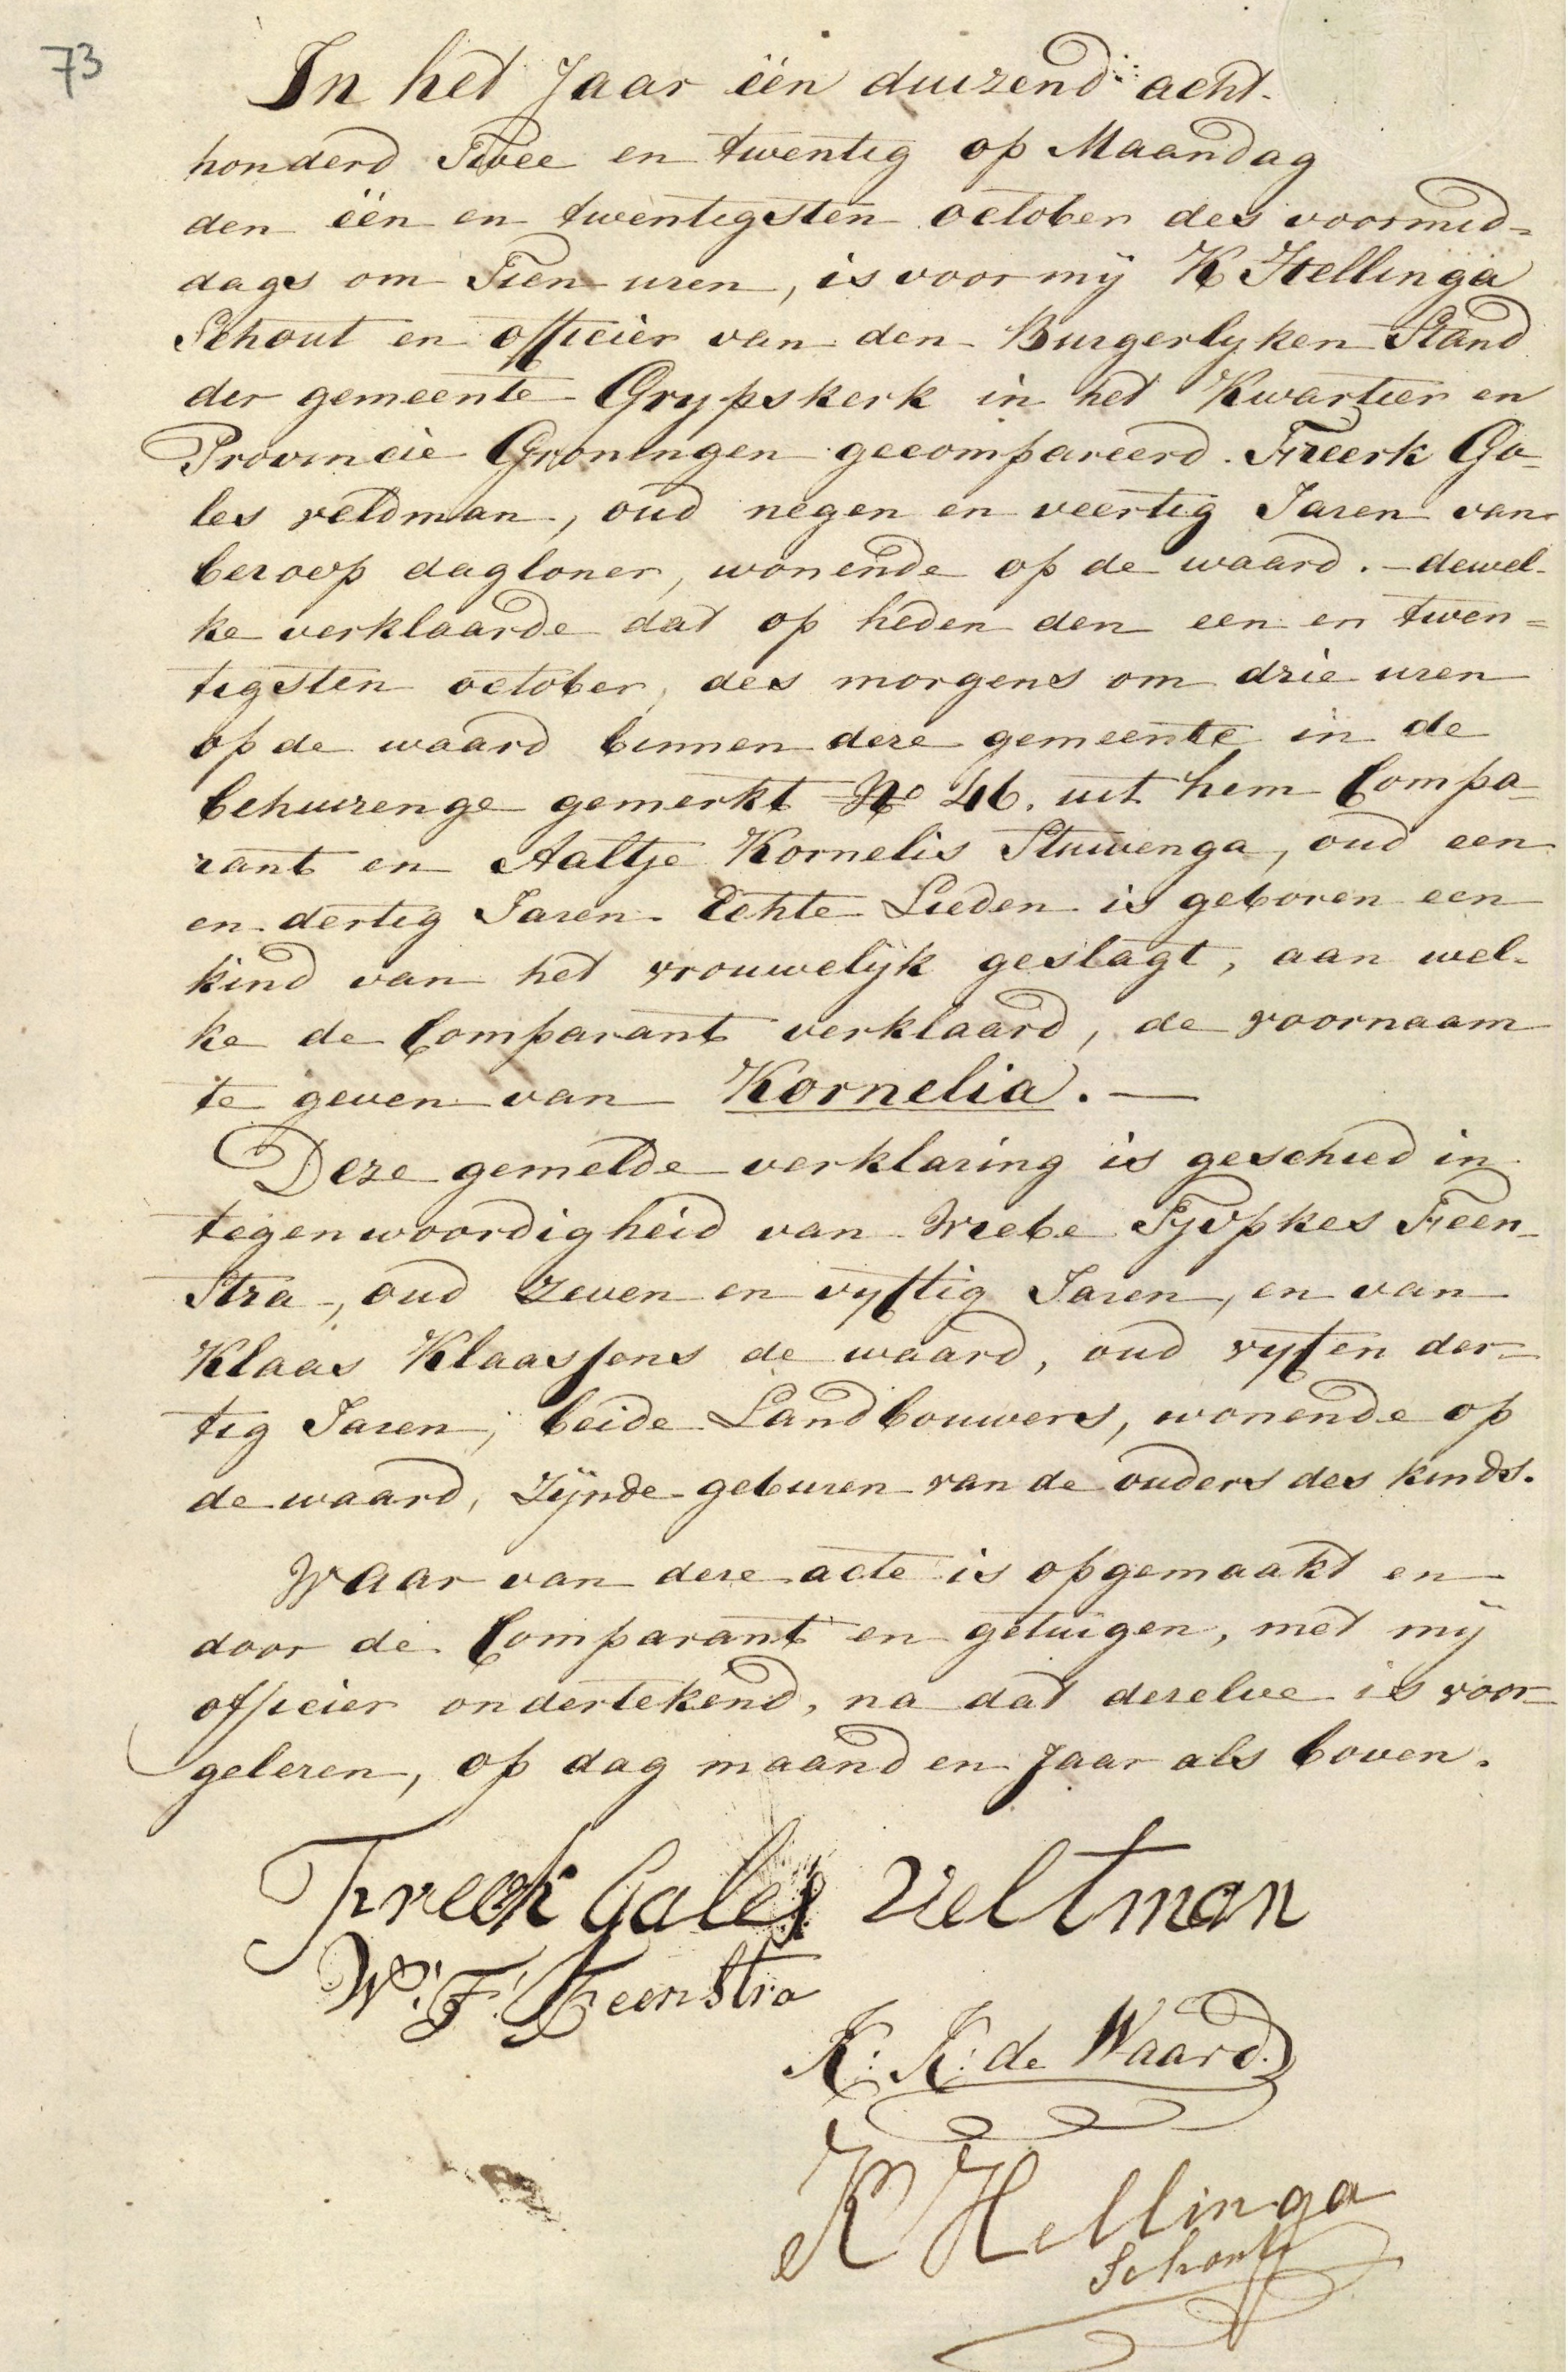 73
In het Jaar één duizend acht-
honderd Twee en twentig op Maandag
den één en twentigsten october des voormid=
dags om Tien uren, is voor mÿ K Hellinga
Schout en officier van den Burgerlyken Stand
der gemeente Grypskerk in het Kwartier en
Provincie Groningen gecompareerd. Freerk Ga=
les veldman, oud negen en veertig Jaren van
beroep dagloner, wonende op de waard. - dewel-
ke verklaarde dat op heden den een en twen=
tigsten october, des morgens om drie uren
op de waard binnen deze gemeente in de
behuizenge gemerkt No 46. uit hem Compa=
rant en Aaltje Kornelis Stuivenga, oud een
en dertig Jaren Echte Lieden is geboren een
kind van het vrouwelÿk geslagt, aan wel-
ke de Comparant verklaard, de voornaam
te geven van Kornelia. —
Deze gemelde verklaring is geschied in
tegenwoordigheid van Wiebe Fopkes Feen-
stra, oud zeven en vyftig Jaren, en van
Klaas Klaassens de waard, oud vyf en der=
tig Jaren, beide Landbouwers, wonende op
de waard, zÿnde geburen van de ouders des kinds.
Waar van deze acte is opgemaakt en
door de Comparant en getuigen, met mÿ
officier ondertekend, na dat dezelve is voor=
gelezen, op dag maand en Jaar als boven.
Freerk Gales Veltman
W: F: Feenstra
K: K: de Waard.
K Hellinga
Schout